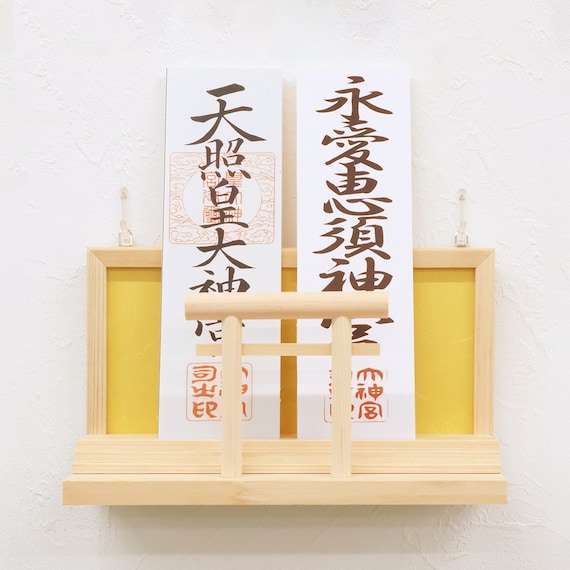 永愛恵須神宮
大神宮
天照皇大神宮
司之印